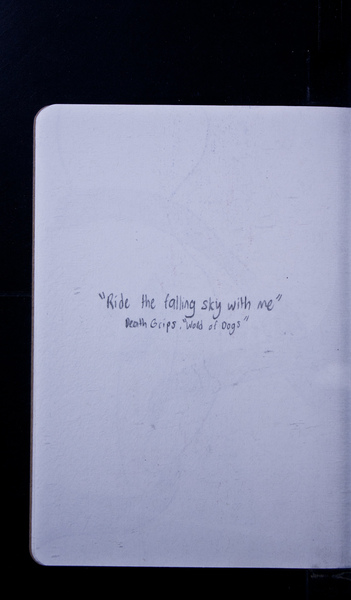 "Ride the falling sky with me"
Death Grips. "World of Dogs"